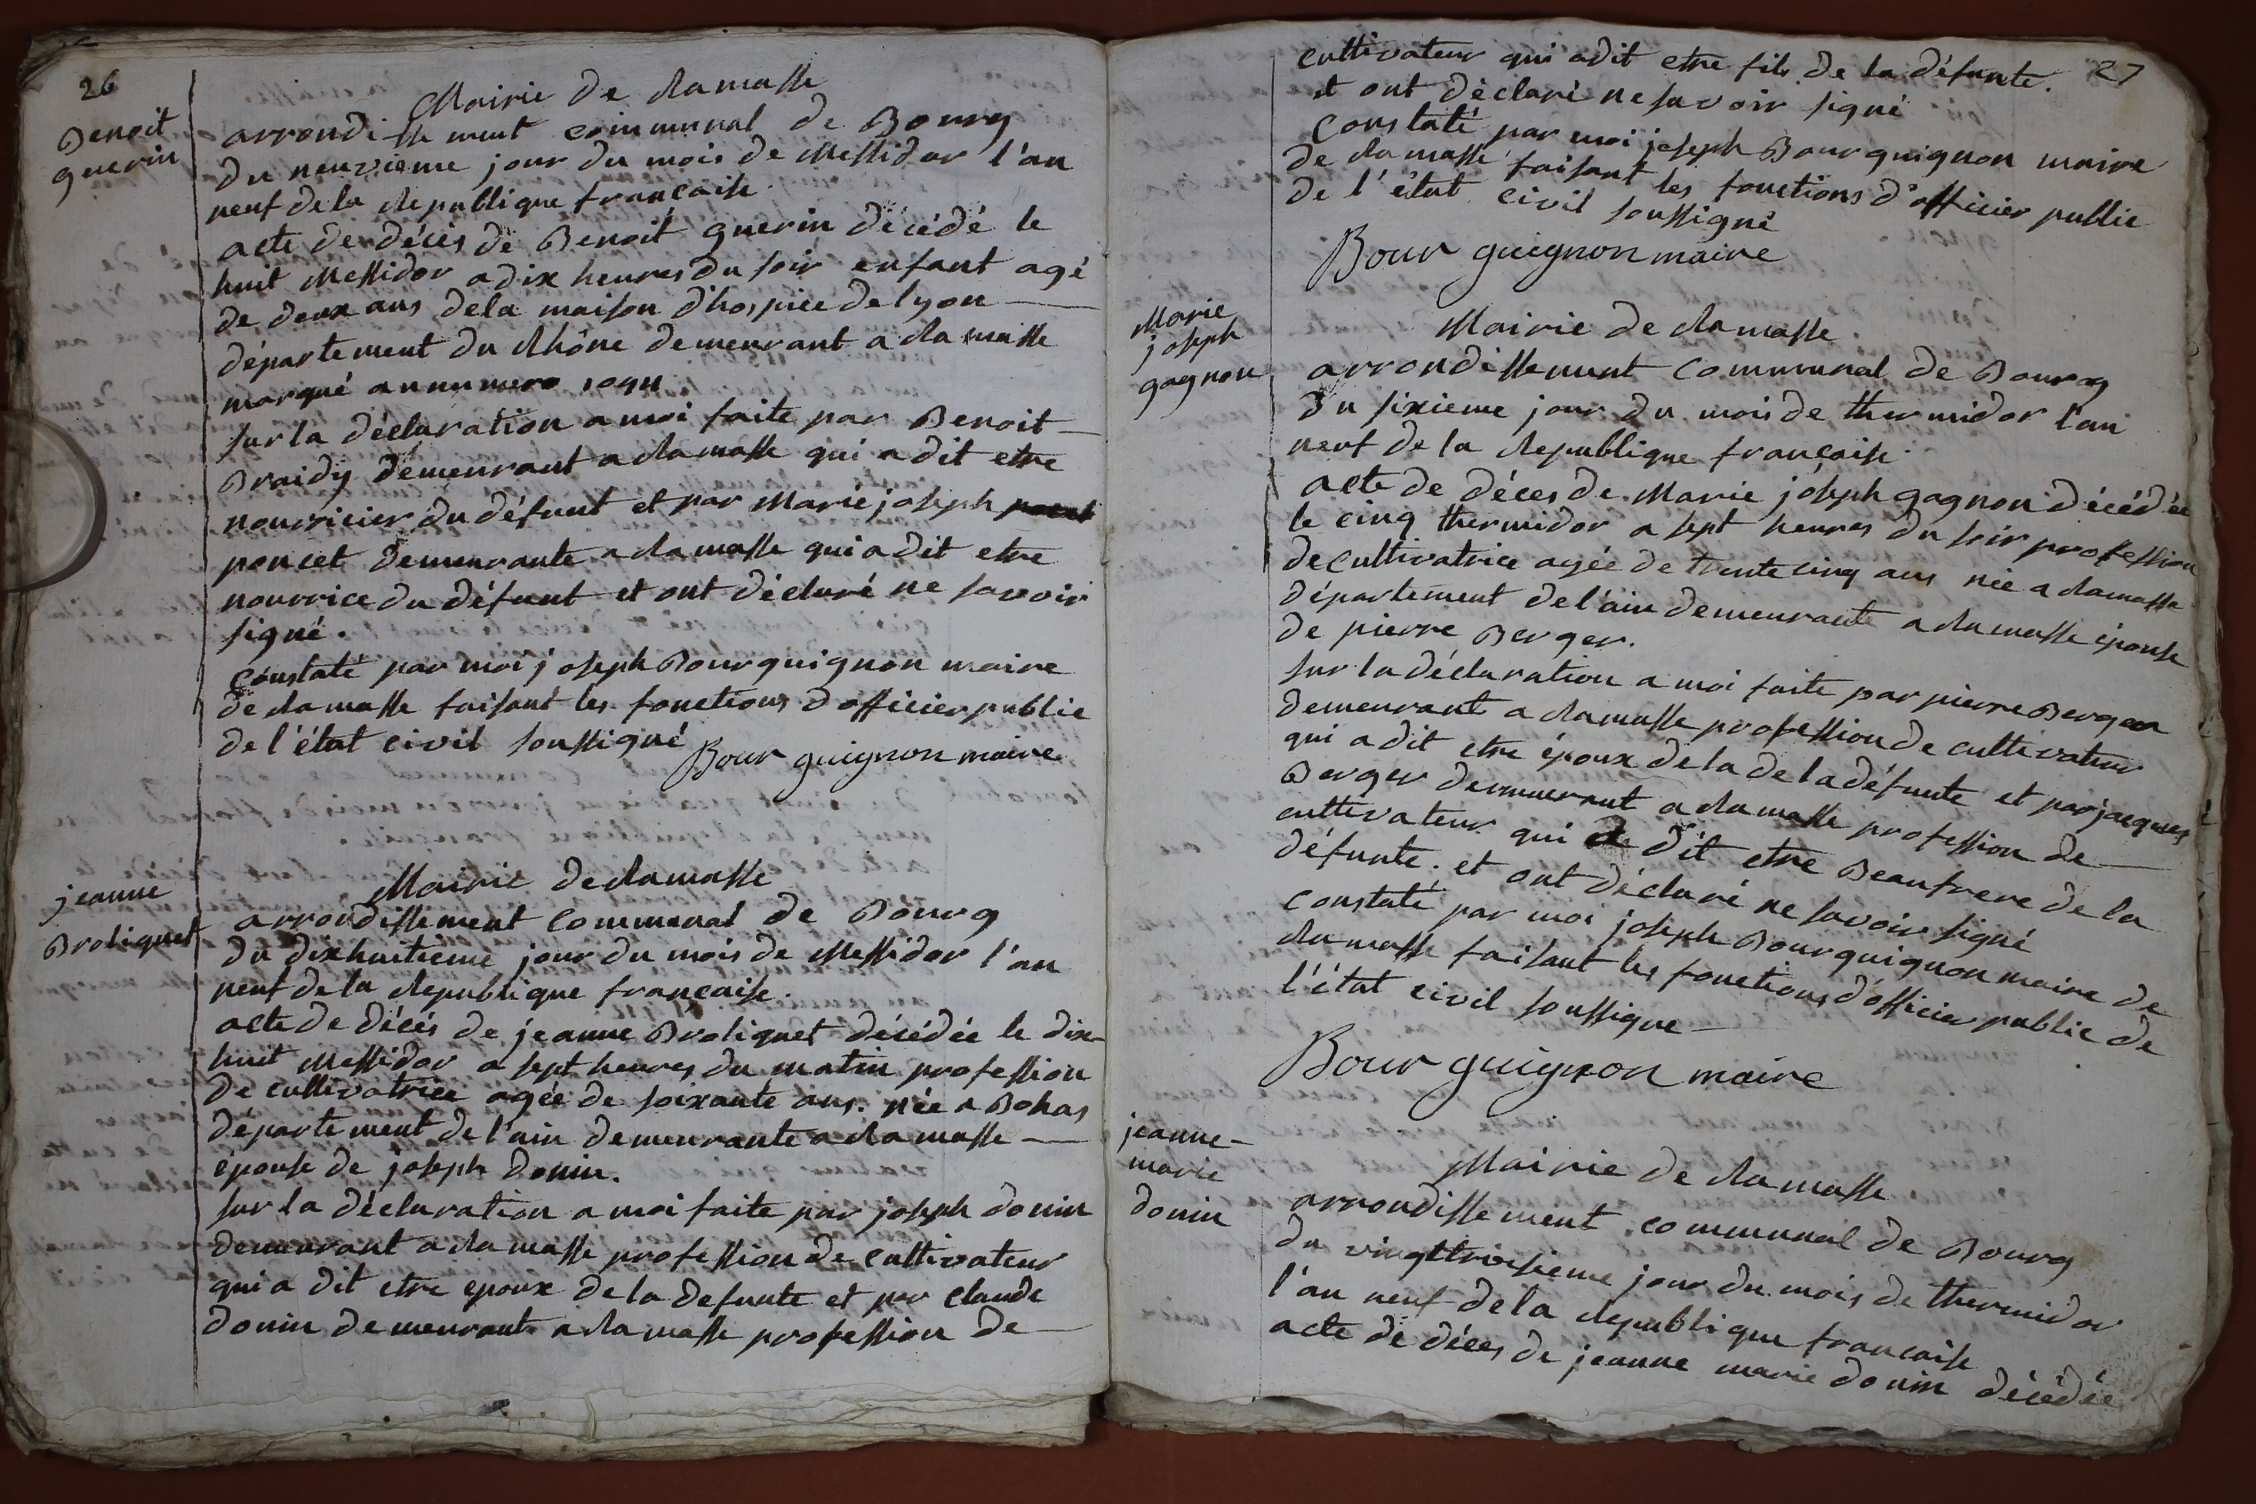 26
Benoit
guerin
Mairie de Ramasse
arrondissement communal de Bourg
du neuvieme jour du mois de Messidor l'an
neuf de la Republique française
acte de décès de Benoit guerin décédé le
huit Messidor a dix heures du soir enfant agé
de deux ans de la maison d'hospice de lyon
département du Rhône demeurant a Ramasse
marqué au numero
sur la déclaration a moi faite par Benoit
Braidy demeurant a Ramasse qui a dit etre
nourricier du défunt et par Marie joseph
poncet demeurante a Ramasse qui a dit etre
nourrice du défunt et ont déclaré ne savoir
signé.
constaté par moi joseph Bourguignon maire
de Ramasse faisant les fonctions d'officier public
de l'état civil soussigné
Bourguignon maire
jeanne
Broliquet
Mairie de Ramasse
arrondissement communal de Bourg
du dixhuitieme jour du mois de Messidor l'an
neuf de la Republique française.
acte de décés de jeanne Broliquet décédée le dix-
huit Messidor a sept heures du matin profession
de cultivatrice agée de soixante ans. née a Bohas
département de l'ain demeurante a Ramasse
épouse de joseph donin.
sur la déclaration a moi faite par joseph donin
demeurant a Ramasse profession de cultivateur
qui a dit etre epoux de la defunte et par claude
donin demeurant a Ramasse profession de
27
cultivateur qui a dit etre fils de la défunte.
et ont déclaré ne savoir signé
constaté par moi joseph Bourguignon maire
de Ramasse faisant les fonctions d'officier public
de l'état civil soussigné
Bourguignon maire
Marie
joseph
gagnon
Mairie de Ramasse
arrondissement communal de Bourg
du sixieme jour du mois de thermidor l'an
neuf de la Republique française.
acte de déces de Marie joseph gagnon décédée
le cinq thermidor a sept heures du soir profession
de cultivatrice agée de trente cinq ans née a Ramasse
département de l'ain demeurante a Ramasse épouse
de pierre Berger.
sur la déclaration a moi faite par pierre Berger
demeurant a Ramasse profession de cultivateur
qui a dit etre époux de la de la défunte et par jacques
Berger demeurant a Ramasse profession de
cultivateur qui a dit etre Beaufrere de la
défunte. et ont déclaré ne savoir signé
constaté par moi joseph Bourguignon maire de
Ramasse faisant les fonctions d'officier public de
l'état civil soussigné
Bourguignon maire
jeanne-
marie
donin
Mairie de Ramasse
arrondissement communal de Bourg
du vingttroisieme jour du mois de thermidor
l'an neuf de la Republique française
acte de déces de jeanne marie donin décédée